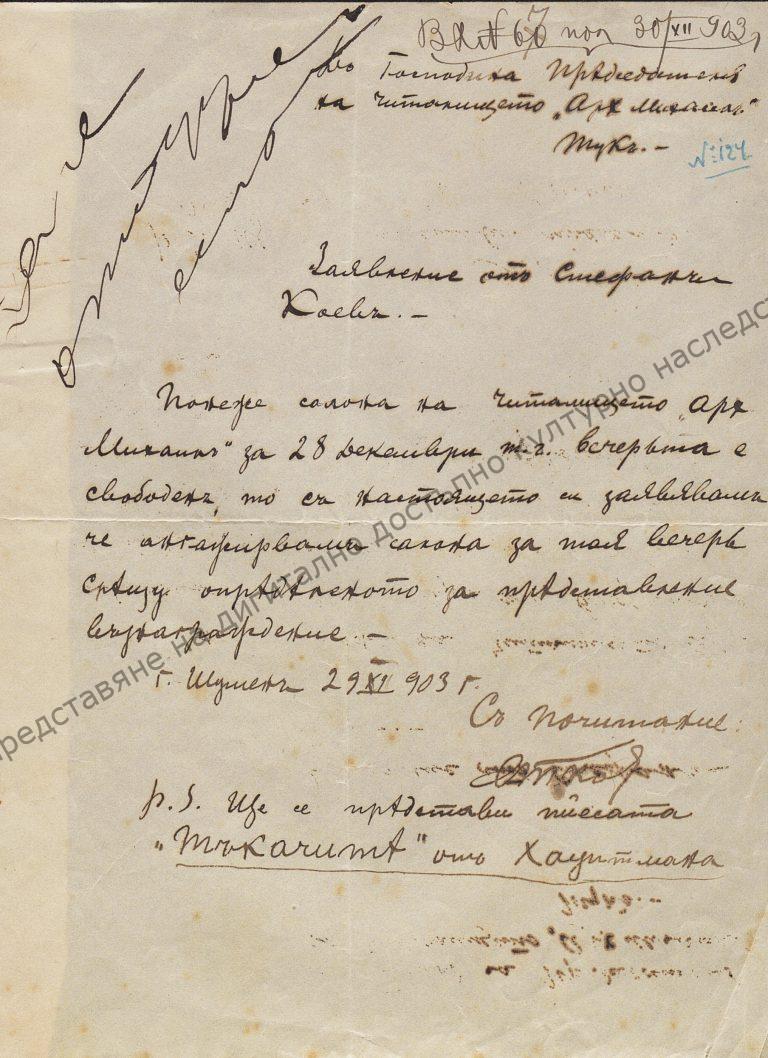 Вх № 67 пол 30/XII 903
До Господина Прѣдседателъ
на читалището „Арх Михаилъ"
Тукъ. –
№ 124
Да се
отговори
Заявление отъ Стефанчи
Коевъ. –
Понеже салона на читалището „Арх
Михаилъ" за 28 Декемврии т.г. вечерьта е
свободенъ, то съ настоящето си заявявамъ
че ангажирвамъ салона за тая вечерь
срѣщу опрѣдѣленото за прѣдставление
възнаграждение –
г. Шуменъ 29 XI 903 г.
Съ почитание:
p. s. Ще се прѣдстави пиесата
„Тъкачитѣ" отъ Хауптмана
представяне на дигитално достъпно културно наследство